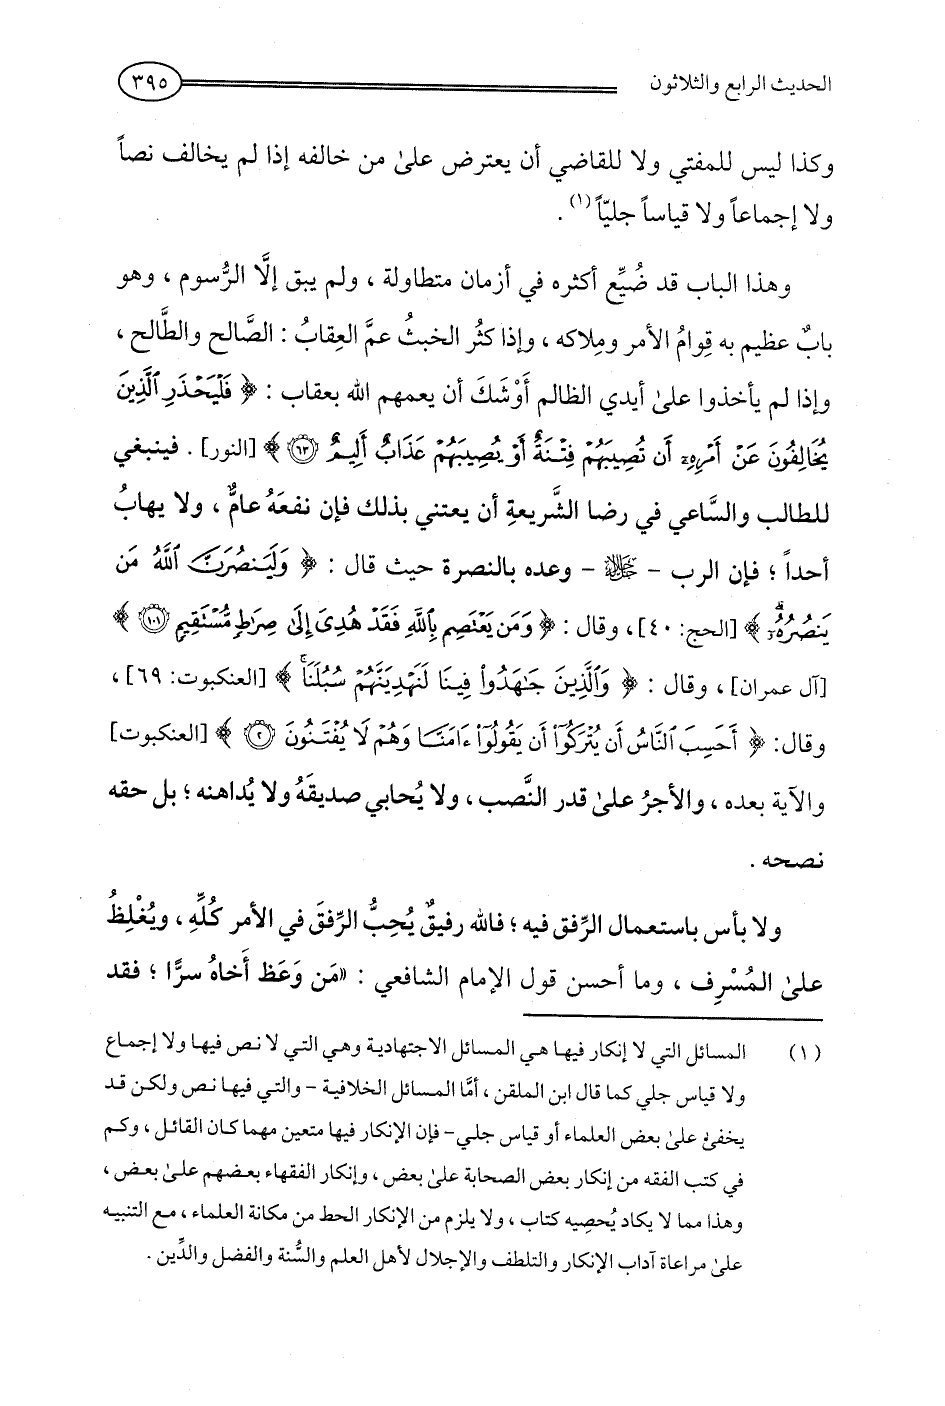 الحديث الرابع والثلاثون ٣٩٥
وكذا ليس للمفتي ولا للقاضي أن يعترض علىٰ من خالفه إذا لم يخالف نصاً
ولا إجماعاً ولا قياساً جليّاً(١) .
وهذا الباب قد ضُيِّع أكثره في أزمان متطاولة ، ولم يبق إلَّا الرُّسوم ، وهو
بابٌ عظيم به قِوامُ الأمر ومِلاكه ، وإذا كثُر الخبثُ عمَّ العِقابُ : الصَّالح والطَّالح ،
وإذا لم يأخذوا علىٰ أيدي الظالم أَوْشَكَ أن يعمهم الله بعقاب : ﴿ فَلْيَحْذَرِ ٱلَّذِينَ
يُخَالِفُونَ عَنْ أَمْرِهِۦٓ أَن تُصِيبَهُمْ فِتْنَةٌ أَوْ يُصِيبَهُمْ عَذَابٌ أَلِيمٌ ﴿٦٣﴾ ﴾ [النور] . فينبغي
للطالب والسَّاعي في رضا الشَّريعةِ أن يعتني بذلك فإن نفعَهُ عامٌّ ، ولا يهابُ
أحداً ؛ فإن الرب - ﷻ - وعده بالنصرة حيث قال : ﴿ وَلَيَنصُرَنَّ ٱللَّهُ مَن
يَنصُرُهُۥٓ ﴾ [الحج: ٤٠] ، وقال : ﴿ وَمَن يَعْتَصِم بِٱللَّهِ فَقَدْ هُدِىَ إِلَىٰ صِرَٰطٍ مُّسْتَقِيمٍ ﴿١٠١﴾ ﴾
[آل عمران] ، وقال : ﴿ وَٱلَّذِينَ جَٰهَدُواْ فِينَا لَنَهْدِيَنَّهُمْ سُبُلَنَا ۚ ﴾ [العنكبوت: ٦٩] ،
وقال: ﴿ أَحَسِبَ ٱلنَّاسُ أَن يُتْرَكُوٓاْ أَن يَقُولُوٓاْ ءَامَنَّا وَهُمْ لَا يُفْتَنُونَ ﴿٢﴾ ﴾ [العنكبوت]
والآية بعده ، والأجرُ علىٰ قدر النَّصب ، ولا يُحابي صديقَهُ ولا يُداهنه ؛ بل حقه
نصحه .
ولا بأس باستعمال الرِّفق فيه ؛ فالله رفيقٌ يُحِبُّ الرِّفقَ في الأمر كُلِّهِ ، ويُغْلِظُ
علىٰ المُسْرِف ، وما أحسن قول الإمام الشافعي : «مَن وَعَظ أَخاهُ سرًّا ؛ فقد
(١) المسائل التي لا إنكار فيها هي المسائل الاجتهادية وهي التي لا نص فيها ولا إجماع
ولا قياس جلي كما قال ابن الملقن ، أمَّا المسائل الخلافية - والتي فيها نص ولكن قد
يخفىٰ علىٰ بعض العلماء أو قياس جلي - فإن الإنكار فيها متعين مهما كان القائل ، وكم
في كتب الفقه من إنكار بعض الصحابة علىٰ بعض ، وإنكار الفقهاء بعضهم علىٰ بعض ،
وهذا مما لا يكاد يُحصيه كتاب ، ولا يلزم من الإنكار الحط من مكانة العلماء ، مع التنبيه
علىٰ مراعاة آداب الإنكار والتلطف والإجلال لأهل العلم والسُّنة والفضل والدِّين .